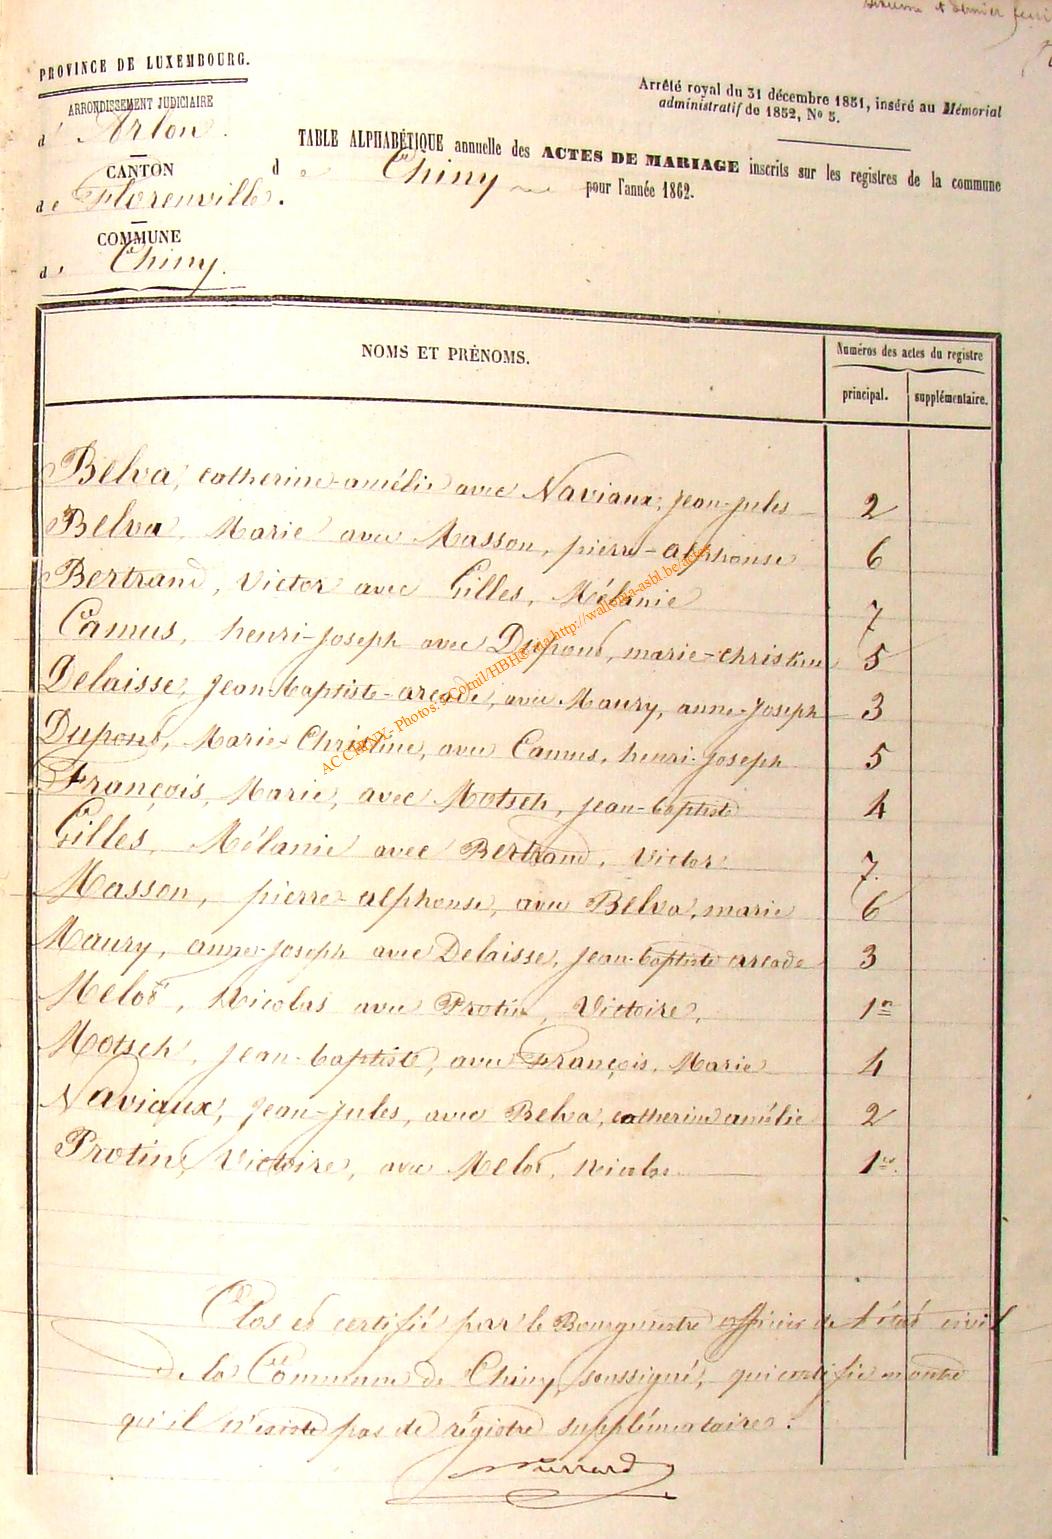 dernier
PROVINCE DE LUXEMBOURG.
ARRONDISSEMENT JUDICIAIRE
d' Arlon.
CANTON
de Florenville.
COMMUNE
de Chiny.
Arrêté royal du 31 décembre 1851, inséré au Mémorial
administratif de 1852, No 5.
TABLE ALPHABÉTIQUE annuelle des ACTES DE MARIAGE inscrits sur les registres de la commune
de Chiny pour l'année 1862.
NOMS ET PRÉNOMS.
Numéros des actes du registre
principal. supplémentaire.
Belva, catherine-amélie avec Naviaux, jean-jules 2
Belva, Marie avec Masson, pierre-alphonse 6
Bertrand, Victor avec Gilles, Mélanie 7
Camus, henri-joseph avec Dupont, marie-christine 5
Delaisse, jean-baptiste-arcade, avec Maury, anne-joseph 3
Dupont, Marie-Christine, avec Camus, henri-joseph 5
François, Marie, avec Motsch, jean-baptiste 4
Gilles, Mélanie avec Bertrand, Victor 7.
Masson, pierre-alphonse, avec Belva, marie 6
Maury, anne-joseph avec Delaisse, jean-baptiste arcade 3
Melot, Nicolas avec Protin, Victoire, 1er
Motsch, jean-baptiste, avec François, Marie 4
Naviaux, jean-jules, avec Belva, catherine amélie 2
Protin, Victoire, avec Melot, nicolas 1er.
Clos et certifié par le Bourgmestre officier de l'état civil
de la Commune de Chiny, soussigné, qui certifie en outre
qu'il n'existe pas de régistre supplémentaire.
ACCRENT - Photos: S.Cornil/HBH© via http://wallonia-asbl.be/actes